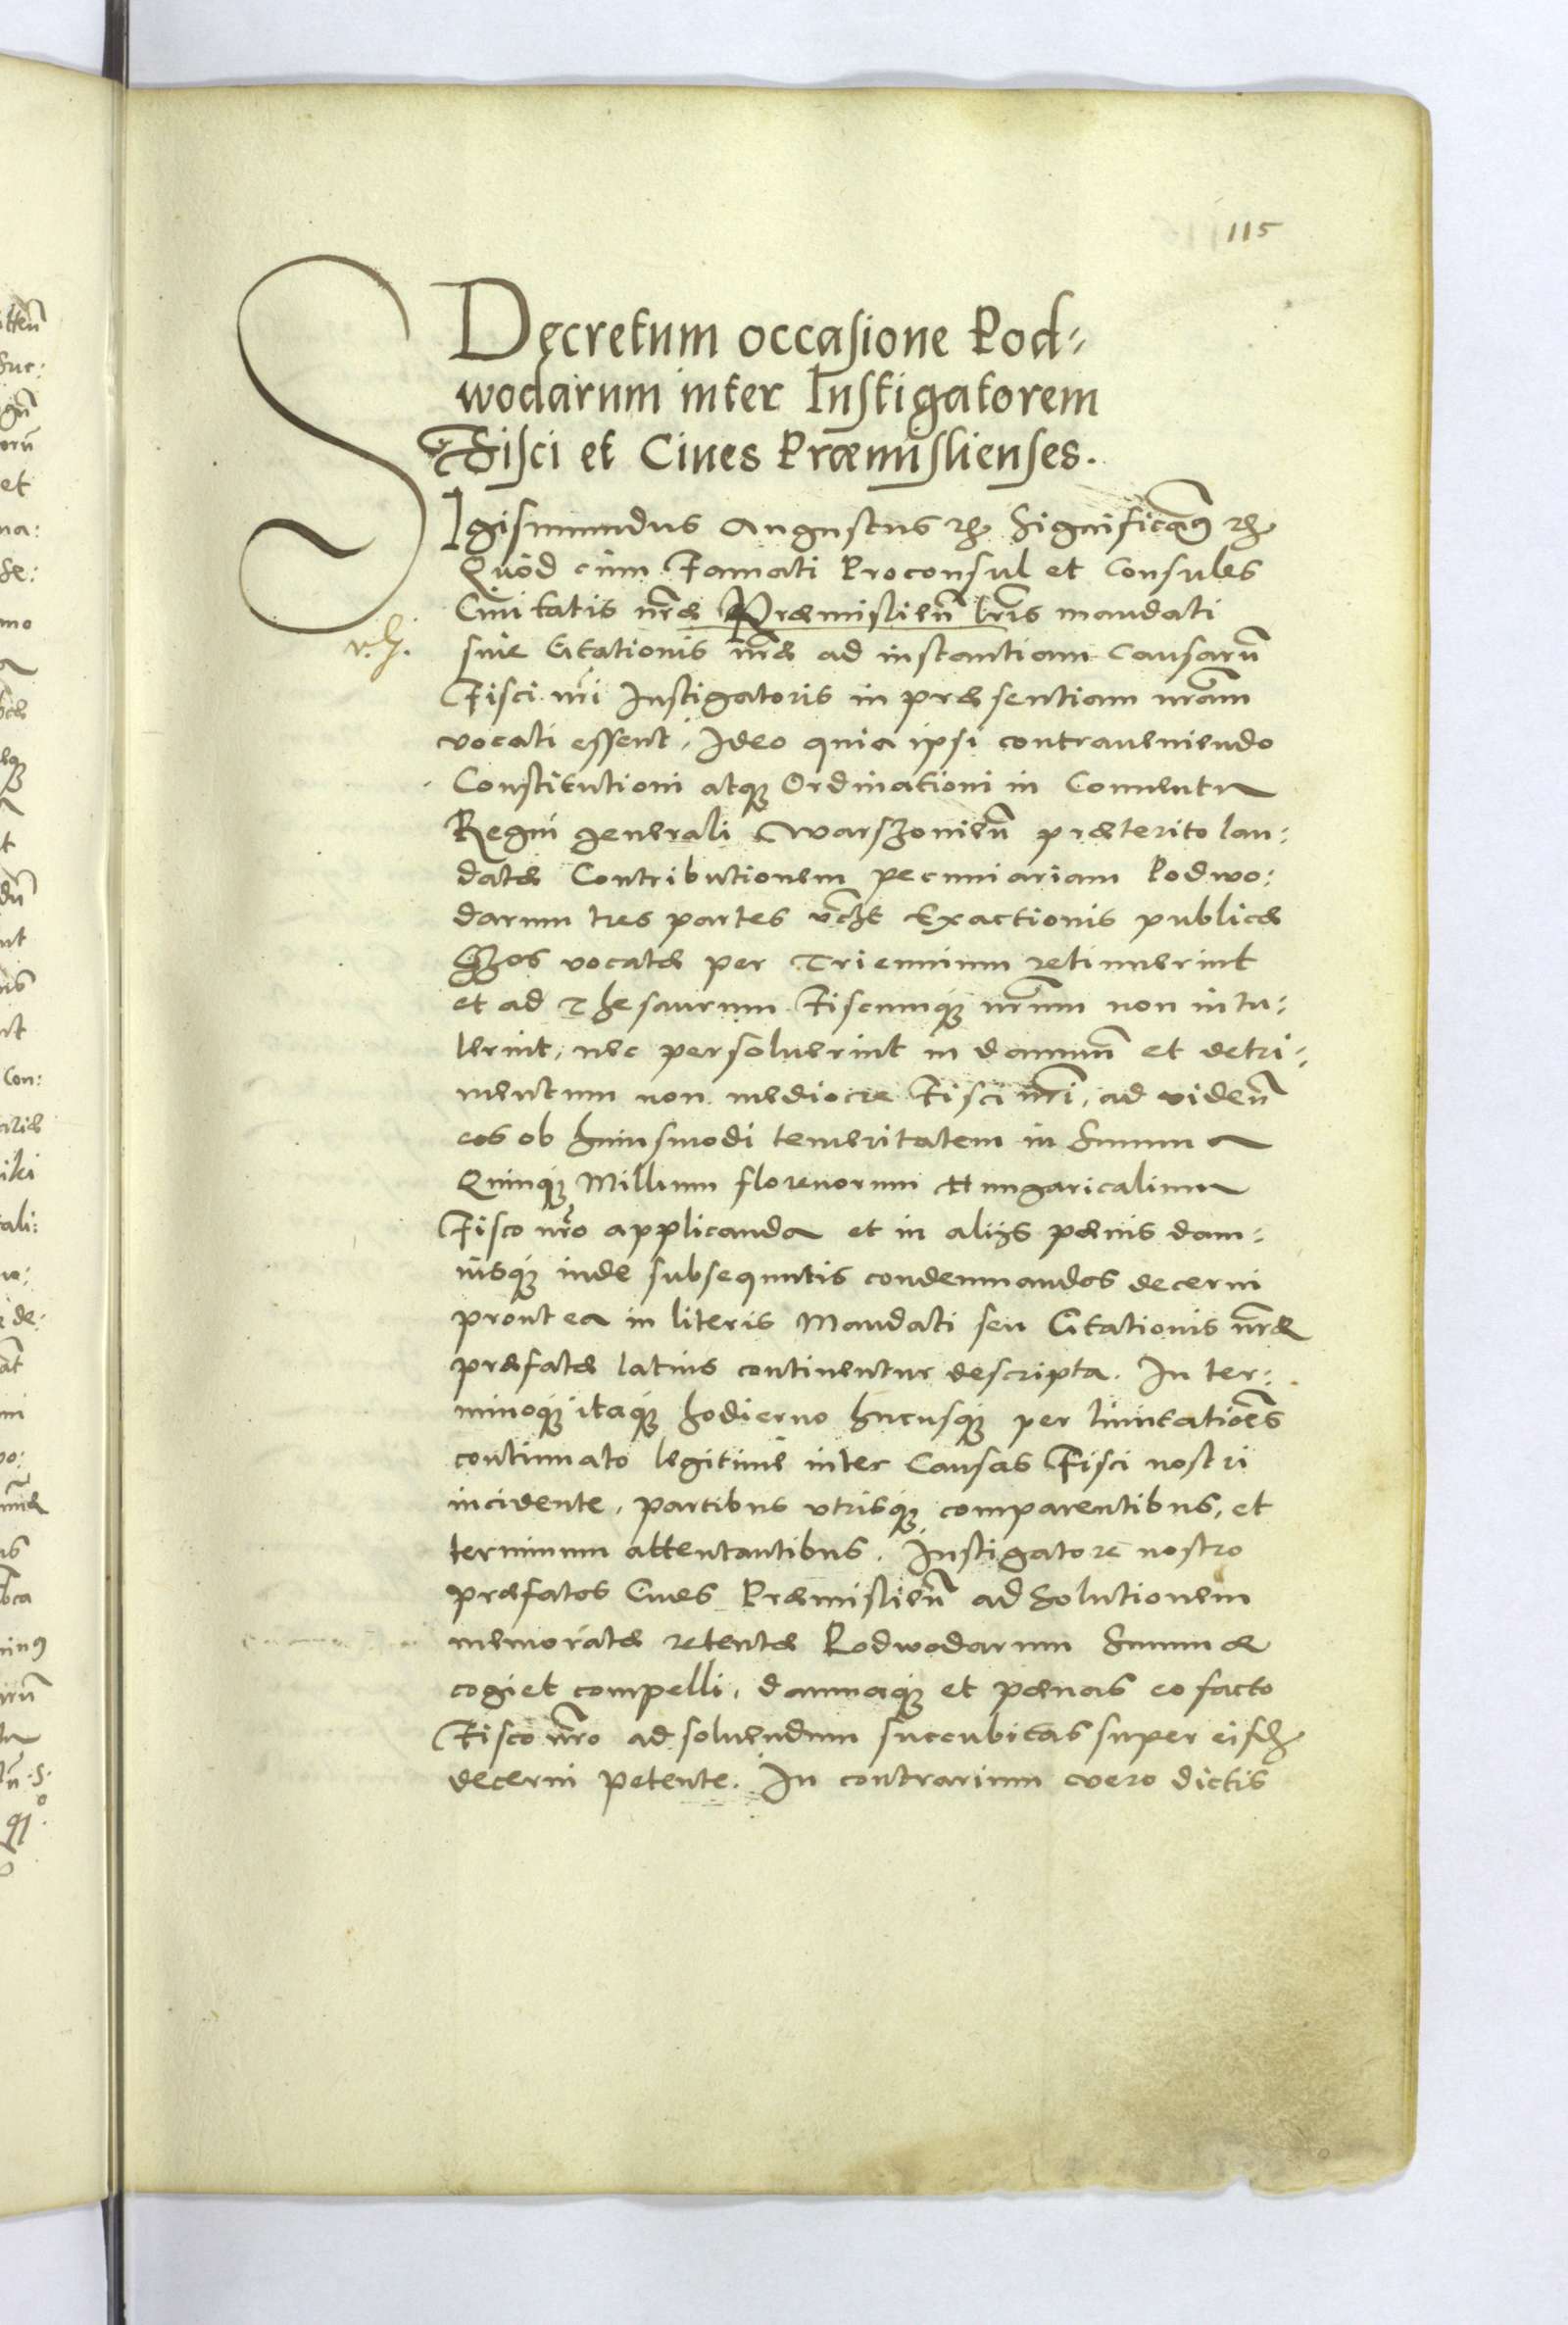 115
Decretum occasione Pod=
wodarum inter Instigatorem
Fisci et Ciues Præmislienses.
SIgismundus Augustus etc. Significamus etc.
Quòd cùm Famati Proconsul et Consules
Ciuitatis nr̃æ Præmislien̄ lr̃is mandati
siue Citationis nr̃æ ad instantiam Causarū
Fisci nr̃i Instigatoris in præsentiam nr̃am
vocati essent, Ideo quia ipsi contraueniendo
Constitutioni atq; Ordinationi in Conuentu
Regni generali Warszouien̄ præterito lau:
datæ Contributionem pecuniariam Podwo:
darum tres partes vcz̃t Exactionis publicæ
Szos vocatæ per Triennium retinuerint
et ad Thesaurum Fiscumq; nr̃um non intu:
lerint, nec persoluerint in damnū et detri:
mentum non mediocre Fisci nr̃i, ad viden̄
eos ob huiusmodi temeritatem in Summa
Quinq; Millium florenorum Hungaricalium
Fisco nr̃o applicanda et in alijs pænis dam:
nisq; inde subsequutis condemnandos decerni
prout ea in literis Mandati seu Citationis nr̃æ
præfatæ latius continentur descripta. In ter:
minoq; itaq; hodierno hucusq; per limitatiões
continuato legitimè inter Causas Fisci nostri
incidente, partibus vtrisq; comparentibus, et
terminum attentantibus. Instigatore nostro
præfatos Ciues Præmislien̄ ad Solutionem
memoratæ retentæ Podwodarum Summæ
cogi et compelli, damnaq; et pænas eo facto
Fisco nr̃o ad soluendum succubitas super eisd.
decerni petente. In contrarium vero dictis